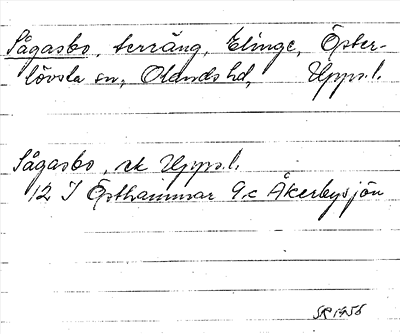 Sågasbo, terräng, Elinge, Öster-
lövsta sn, Olands hd, Upps.l.
Sågasbo, ek Upps.l.
12 I Östhammar 9c Åkerbysjön
SR 1956